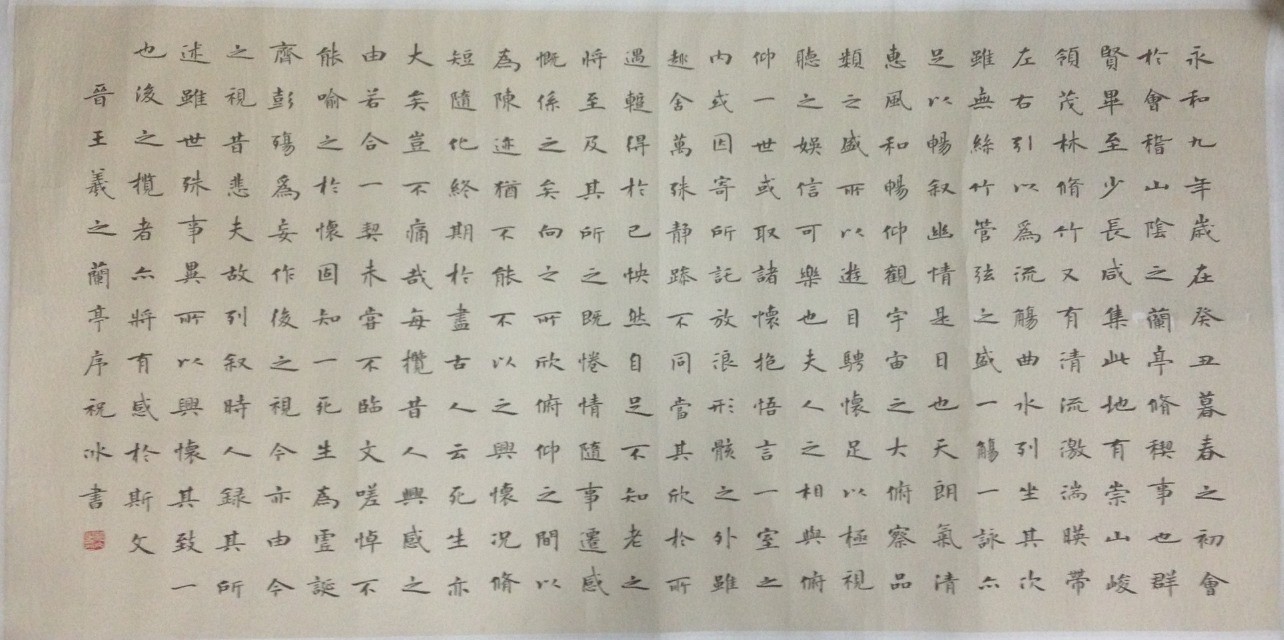 永和九年歲在癸丑暮春之初會
於會稽山陰之蘭亭脩稧事也群
賢畢至少長咸集此地有崇山峻
領茂林脩竹又有清流激湍暎帶
左右引以為流觴曲水列坐其次
雖無絲竹管弦之盛一觴一詠亦
足以暢叙幽情是日也天朗氣清
惠風和暢仰觀宇宙之大俯察品
類之盛所以遊目騁懷足以極視
聽之娛信可樂也夫人之相與俯
仰一世或取諸懷抱悟言一室之
內或因寄所託放浪形骸之外雖
趣舍萬殊靜躁不同當其欣於所
遇蹔得於己怏然自足不知老之
將至及其所之既惓情隨事遷感
慨係之矣向之所欣俯仰之間以
為陳迹猶不能不以之興懷況脩
短隨化終期於盡古人云死生亦
大矣豈不痛哉每攬昔人興感之
由若合一契未嘗不臨文嗟悼不
能喻之於懷固知一死生為虛誕
齊彭殤為妄作後之視今亦由今
之視昔悲夫故列叙時人錄其所
述雖世殊事異所以興懷其致一
也後之攬者亦將有感於斯文
晉王羲之蘭亭序祝冰書